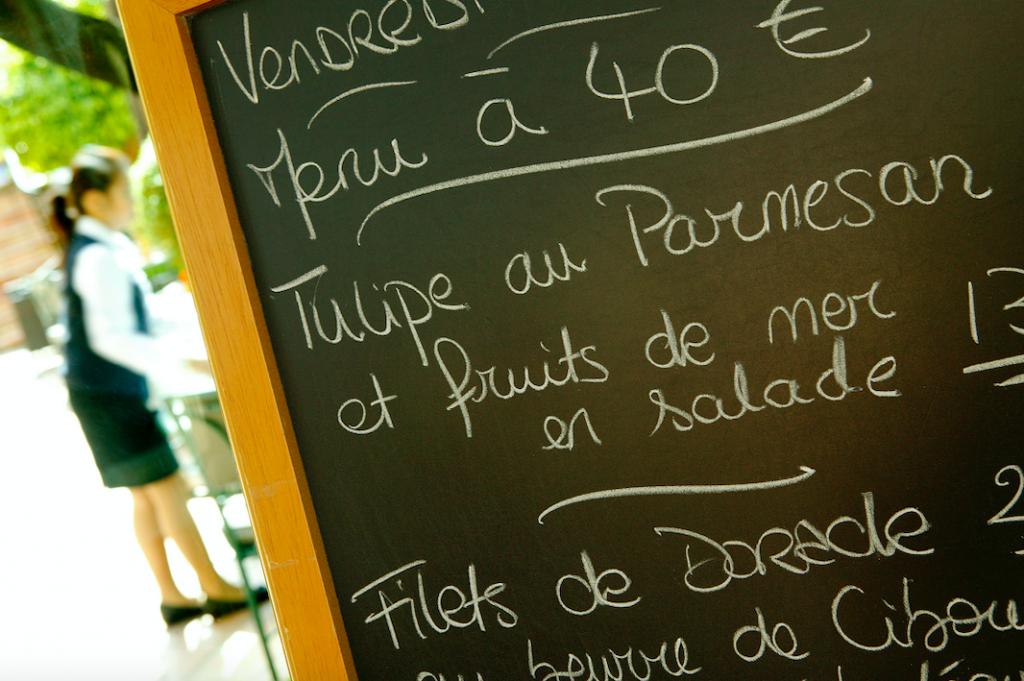 Vendredi
Menu à 40 €
Tulipe au Parmesan
et fruits de mer 13
en salade
Filets de Dorade 2
au beurre de Cibou